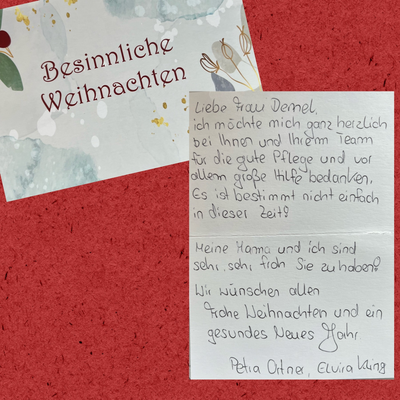 Besinnliche
Weihnachten
Liebe Frau Demel,
ich möchte mich ganz herzlich
bei Ihnen und Ihrem Team
für die gute Pflege und vor
allem große Hilfe bedanken.
Es ist bestimmt nicht einfach
in dieser Zeit!
Meine Mama und ich sind
sehr, sehr froh Sie zu haben!
Wir wünschen allen
Frohe Weihnachten und ein
gesundes Neues Jahr.
Petra Ortner, Elvira